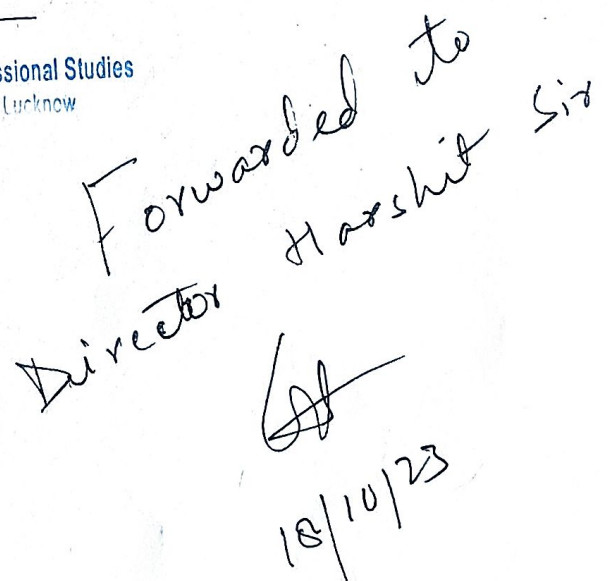 ssional Studies
Lucknow
Forwarded to
Director Harshit Sir
18/10/23